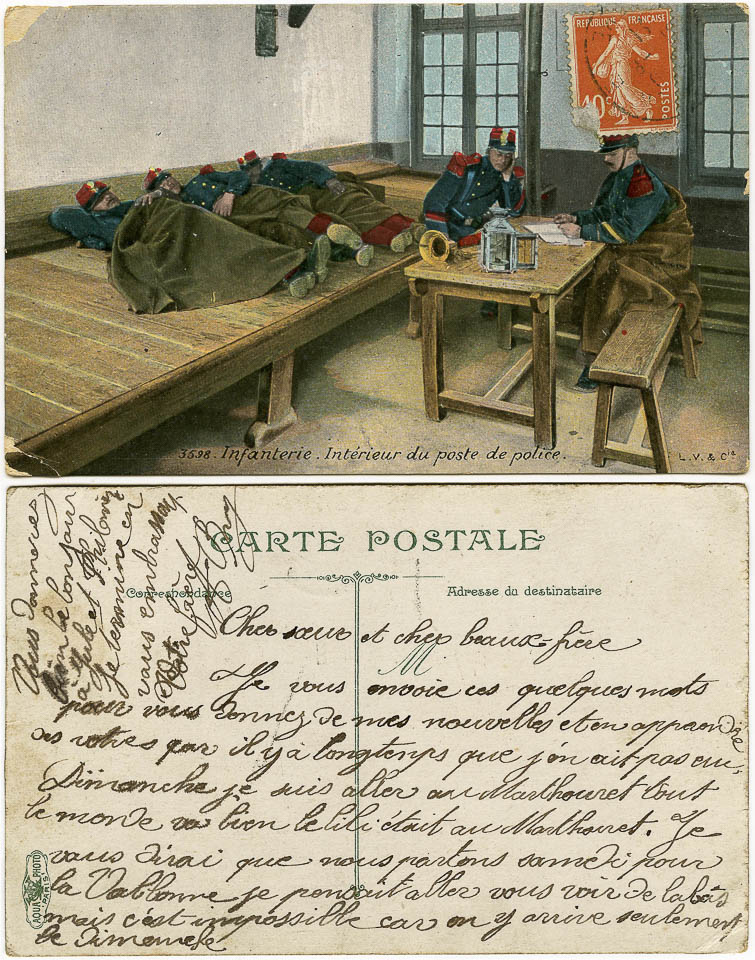 REPUBLIQUE FRANÇAISE
10c
POSTES
3598. Infanterie. Intérieur du poste de police.
L.V. & Cie
CARTE POSTALE
Correspondance
Adresse du destinataire
Cher sœur et cher beaux-frère
Je vous envoie ces quelques mots
pour vous donnez de mes nouvelles et en apprendre
des votres car il y à longtemps que j'en ait pas eu.
Dimanche je suis aller au Marlhouret tout
le monde va bien le lili était au Marlhouret. Je
vous dirai que nous partons samedi pour
la Valbonne je pensait aller vous voir de labàs
mais c'est impossible car on y arrive seulement
le dimanche
Vous donnerez
bien le bonjour
a Jules et
Je termine en
vous embrassant
Votre frère
AQUA PHOTO
PARIS